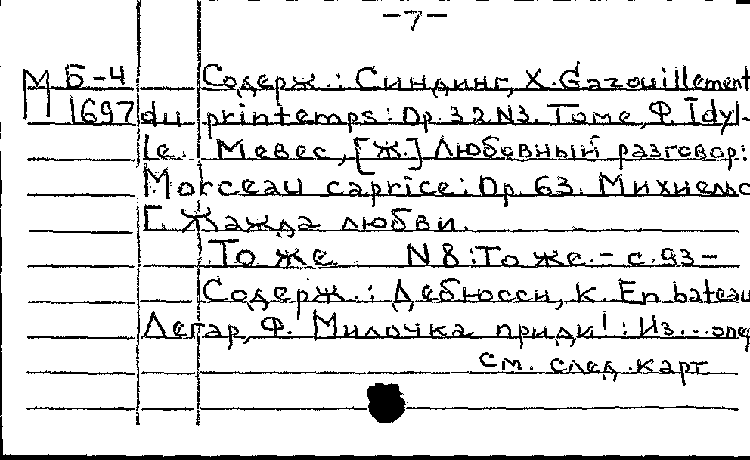 -7-
М Б-4 Содерж.: Синдинг, Х. Gazouillement
1697 du printemps: Op. 32 N3. Томе, Ф. Idyl-
le. Мевес, [Ж.] Любовный разговор:
Morceau caprice: Op. 63. Михиельс
Г. Жажда любви.
То же N 8: То же. - с. 93-
Содерж.: Дебюсси, К. En bateau
Легар, Ф. Милочка приди!: Из... опер
см. след. карт